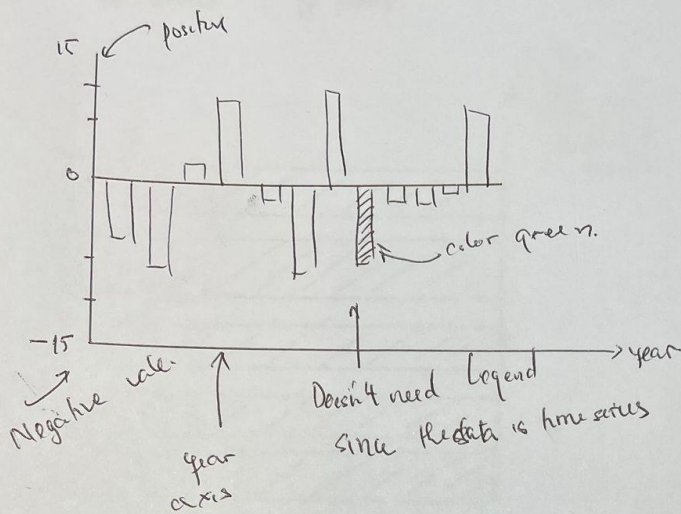 15
positive
0
color green.
-15
year
Negative vale.
year
axis
Doesn't need Legend
since the data is time series